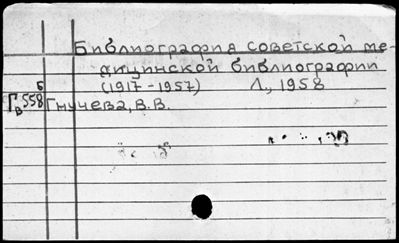 Библиография советской ме-
дицинской библиографии
(1917-1957) Л., 1958
Б
Гв 558 Гнучева, В.В.